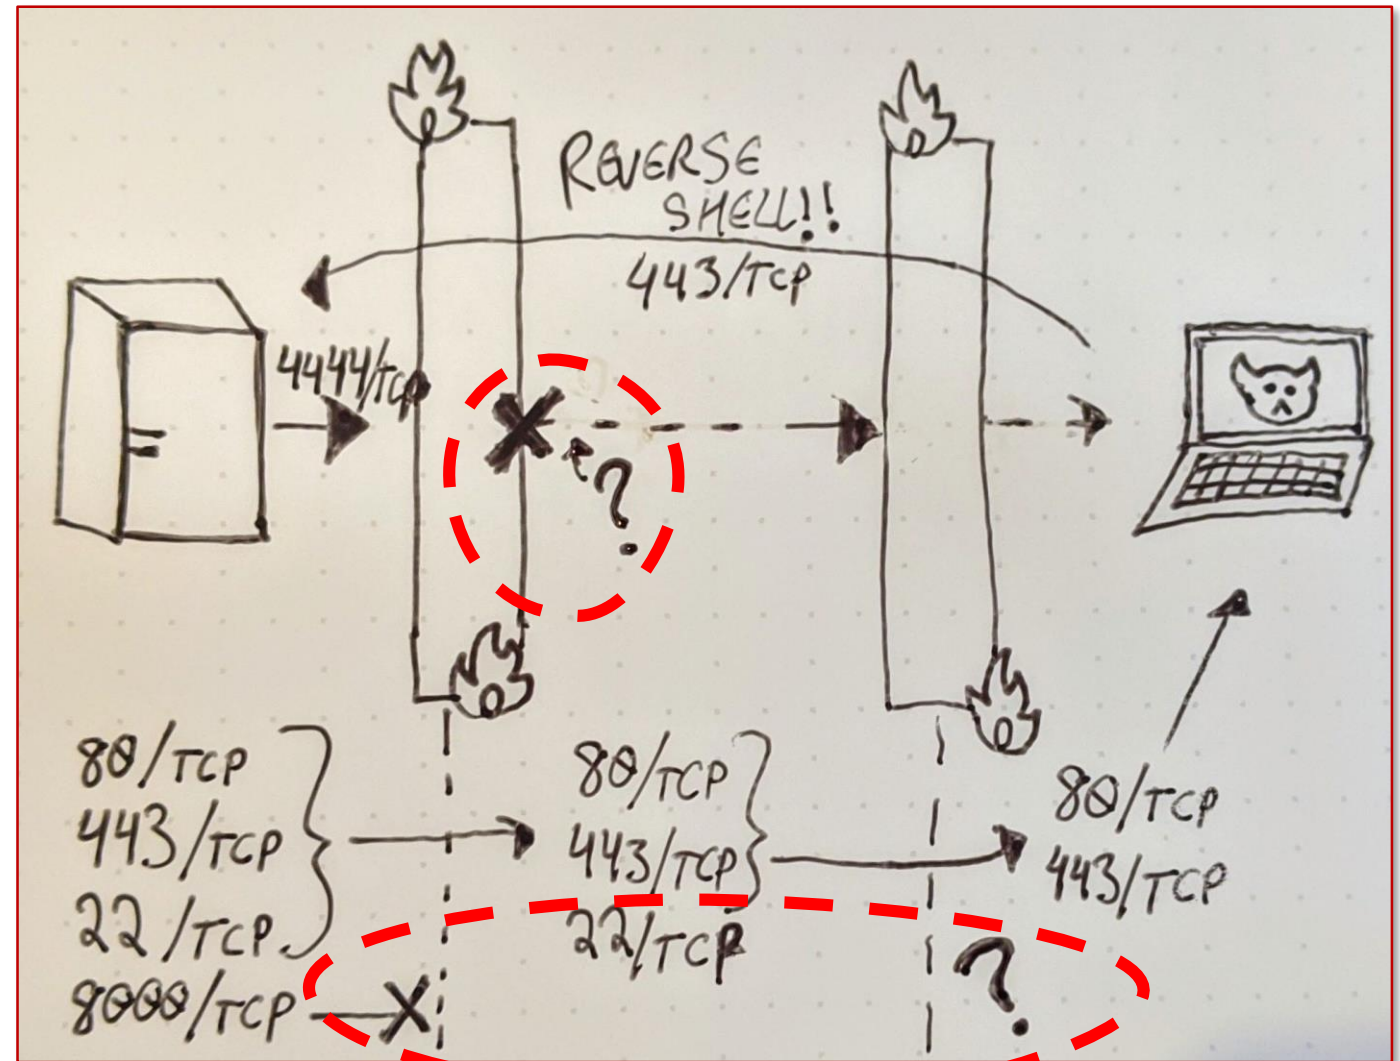 REVERSE
SHELL!!
443/TCP
4444/TCP
?
80/TCP
443/TCP
22/TCP
8000/TCP
80/TCP
443/TCP
22/TCP
80/TCP
443/TCP
?